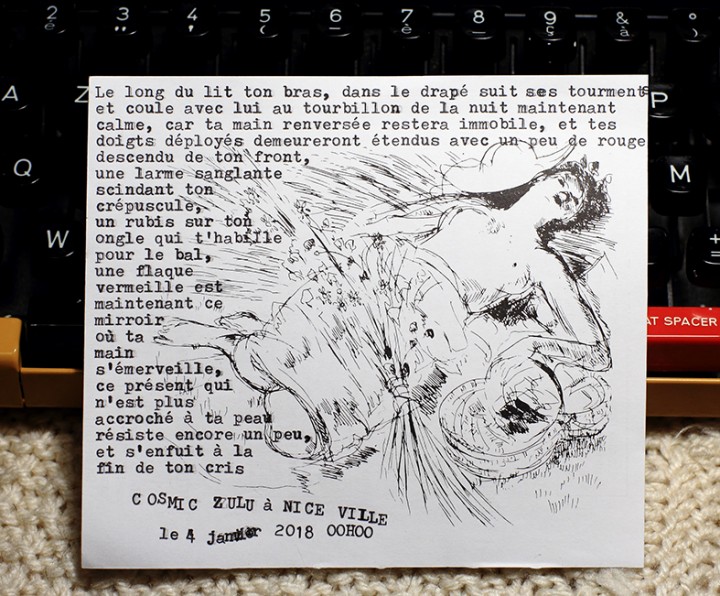 2 3 4 5 6 7 8 9 & °
é " ' ( è _ ç à
A Z P
Q M
W
AT SPACER
Le long du lit ton bras, dans le drapé suit ses tourments
et coule avec lui au tourbillon de la nuit maintenant
calme, car ta main renversée restera immobile, et tes
doigts déployés demeureront étendus avec un peu de rouge
descendu de ton front,
une larme sanglante
scindant ton
crépuscule,
un rubis sur ton
ongle qui t'habille
pour le bal,
une flaque
vermeille est
maintenant ce
mirroir
où ta
main
s'émerveille,
ce présent qui
n'est plus
accroché à ta peau
résiste encore un peu,
et s'enfuit à la
fin de ton cris
COSMIC ZULU à NICE VILLE
le 4 janvier 2018 OOHOO